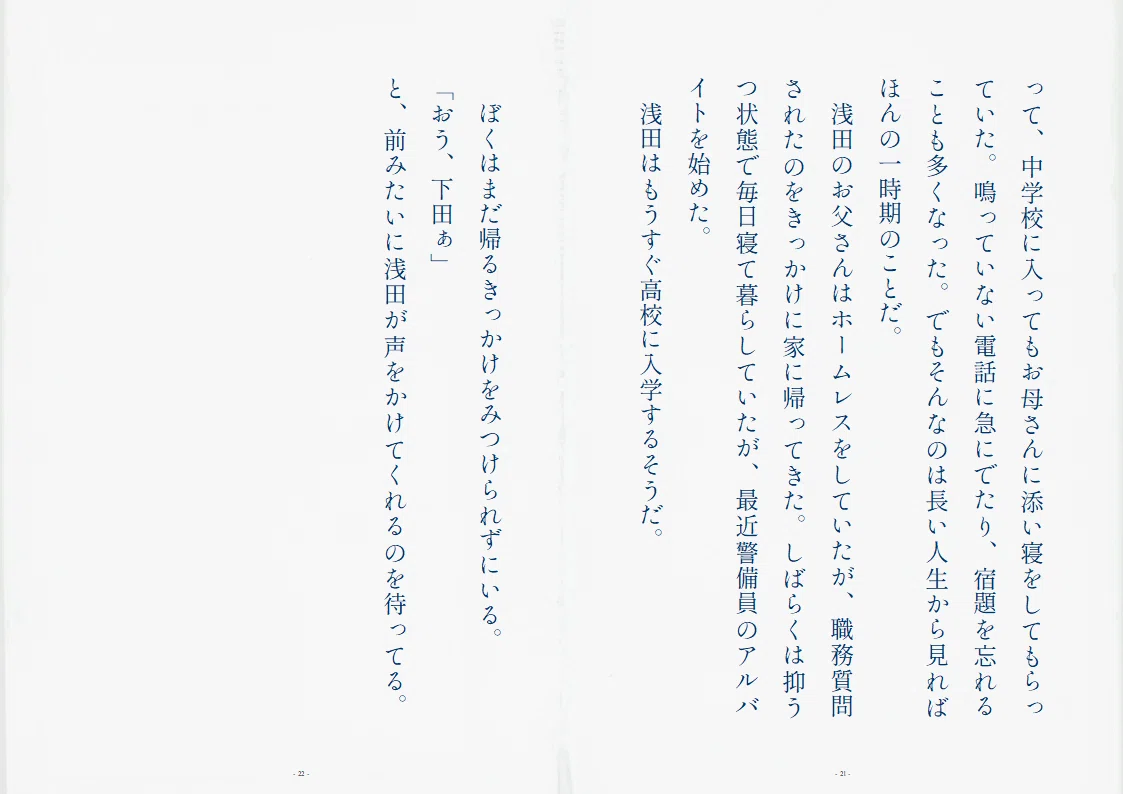 って、中学校に入ってもお母さんに添い寝をしてもらっ
ていた。鳴っていない電話に急にでたり、宿題を忘れる
ことも多くなった。でもそんなのは長い人生から見れば
ほんの一時期のことだ。
浅田のお父さんはホームレスをしていたが、職務質問
されたのをきっかけに家に帰ってきた。しばらくは抑う
つ状態で毎日寝て暮らしていたが、最近警備員のアルバ
イトを始めた。
浅田はもうすぐ高校に入学するそうだ。
- 21 -
ぼくはまだ帰るきっかけをみつけられずにいる。
「おう、下田ぁ」
と、前みたいに浅田が声をかけてくれるのを待ってる。
- 22 -